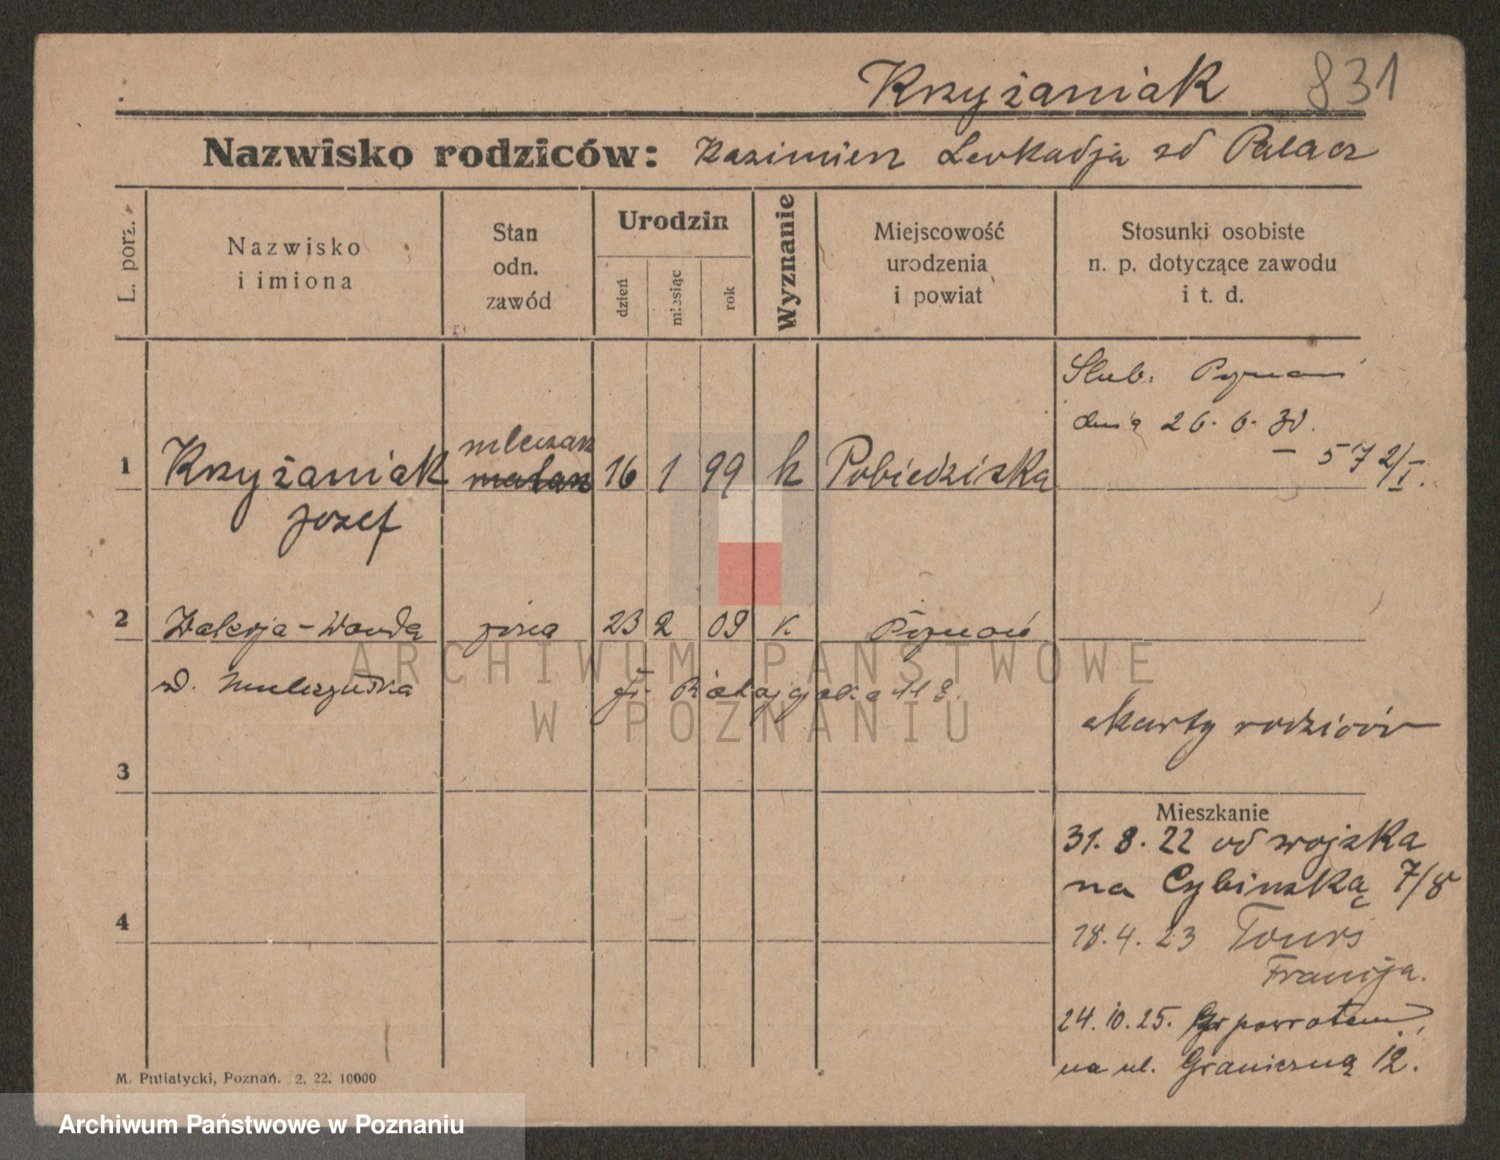 Krzyżaniak 831
Nazwisko rodziców: Kazimierz Leokadja zd Palacz
L. porz.
Nazwisko
i imiona
Stan
odn.
zawód
Urodzin
dzień
miesiąc
rok
Wyznanie
Miejscowość
urodzenia
i powiat
Stosunki osobiste
n. p. dotyczące zawodu
i t. d.
Ślub. Poznań
dnia 26.6.30.
– 572/I.
mleczarz
1 Krzyżaniak 16 1 99 k Pobiedziska
Józef
2 Walerja-Wanda żona 23 2 09 k. Poznań
zd.
karty rodziców
3
Mieszkanie
31.8.22 od wojska
na Cybińską 7/8
4
18.4.23 Tours
Francja.
24.10.25. powrotem
na ul. Graniczną 12.
M. Putiatycki, Poznań. 2. 22. 10000
ARCHIWUM PAŃSTWOWE
W POZNANIU
Archiwum Państwowe w Poznaniu